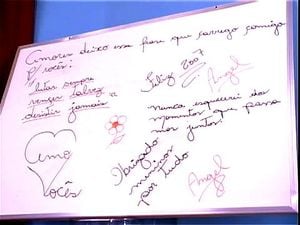 Amores deixo essa frase que carrego comigo
p/ vocês:
lutar sempre
vencer talvez
desistir jamais
Feliz 2007
Angel
nunca esquecerei dos
momentos que passa
mos juntos!
Amo
Vocês
Obrigado
meninos
por tudo
Angel